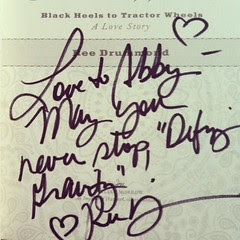 Black Heels to Tractor Wheels
A Love Story
Ree Drummond
Love to Abby
May you
never stop, "Defying
Gravity"
Ree